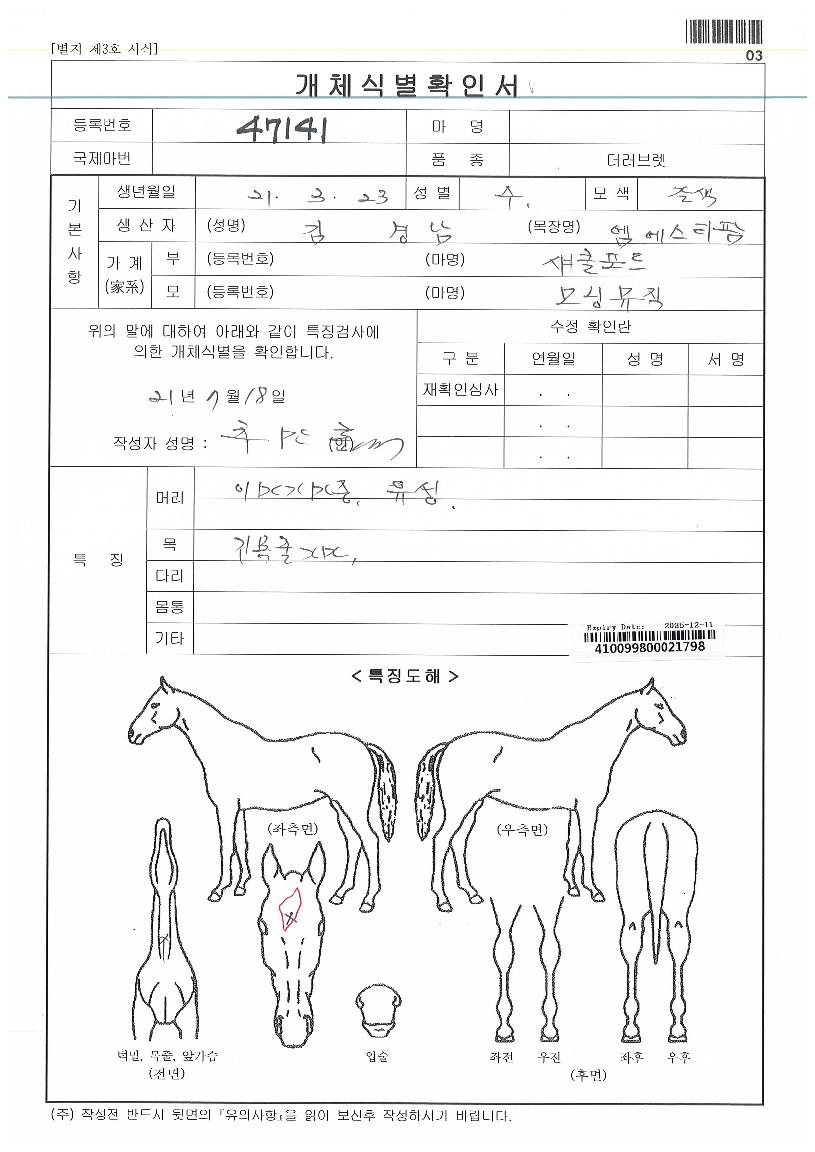 [별지 제3호 서식]
03
개체식별확인서
등록번호 47141 마 명
국제마번 품 종 더러브렛
기본사항
생년월일 21. 3. 23 성별 수. 모색
생산자 (성명) 김 경남 (목장명) 엠에스티팜
가계 (家系) 부 (등록번호) (마명) 섀클포드
모 (등록번호) (마명) 모닝뮤직
위의 말에 대하여 아래와 같이 특징검사에
의한 개체식별을 확인합니다.
21년 7월 18일
작성자 성명 : (인)
수정 확인란
구분 연월일 성명 서명
재확인심사 . .
. .
. .
특 징
머리 유성.
목
다리
몸통
기타
Expiry Date: 2025-12-11
410099800021798
< 특징도해 >
(좌측면) (우측면)
턱밑, 목줄, 앞가슴 입술 좌전 우전 좌후 우후
(전면) (후면)
(주) 작성전 반드시 뒷면의 『유의사항』을 읽어 보신후 작성하시기 바랍니다.